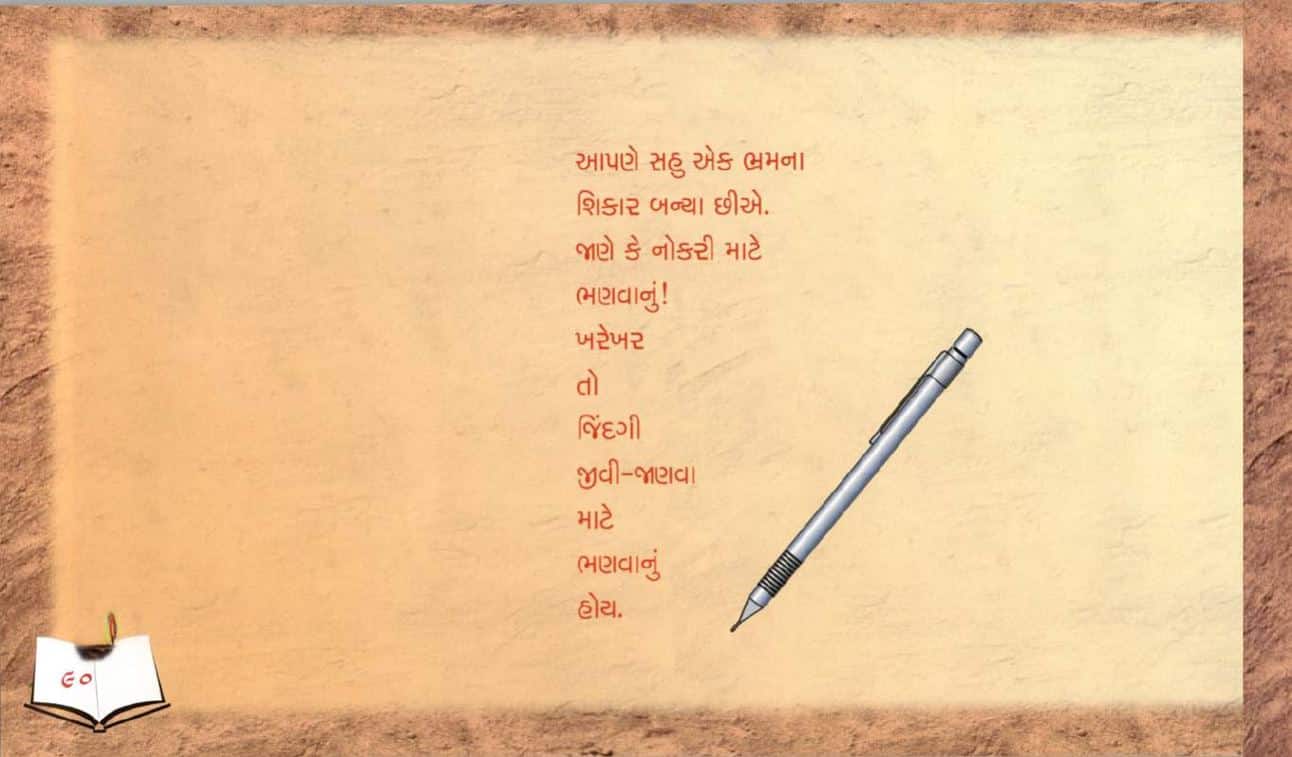 આપણે સહુ એક ભ્રમના
શિકાર બન્યા છીએ.
જાણે કે નોકરી માટે
ભણવાનું!
ખરેખર
તો
જિંદગી
જીવી-જાણવા
માટે
ભણવાનું
હોય.
૯૦